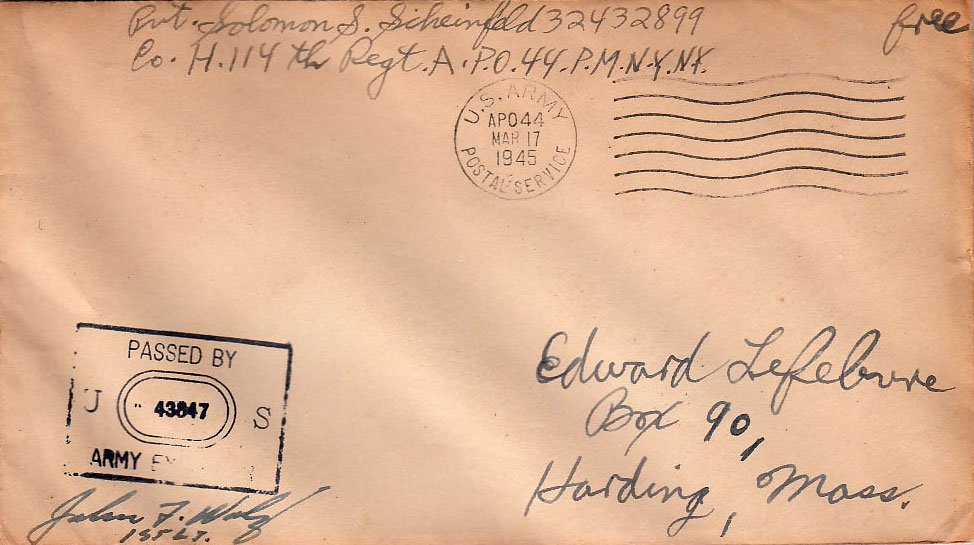 Pvt. Solomon S. Scheinfeld 32432899
free
Co. H. 114 th Regt. A.P.O. 44. P.M. N.Y. NY.
U.S. ARMY
APO 44
MAR 17
1945
POSTAL SERVICE
PASSED BY
U 43847 S
ARMY
Edward Lefebvre
Box 90,
Harding, Mass.
John F.
1ST LT.